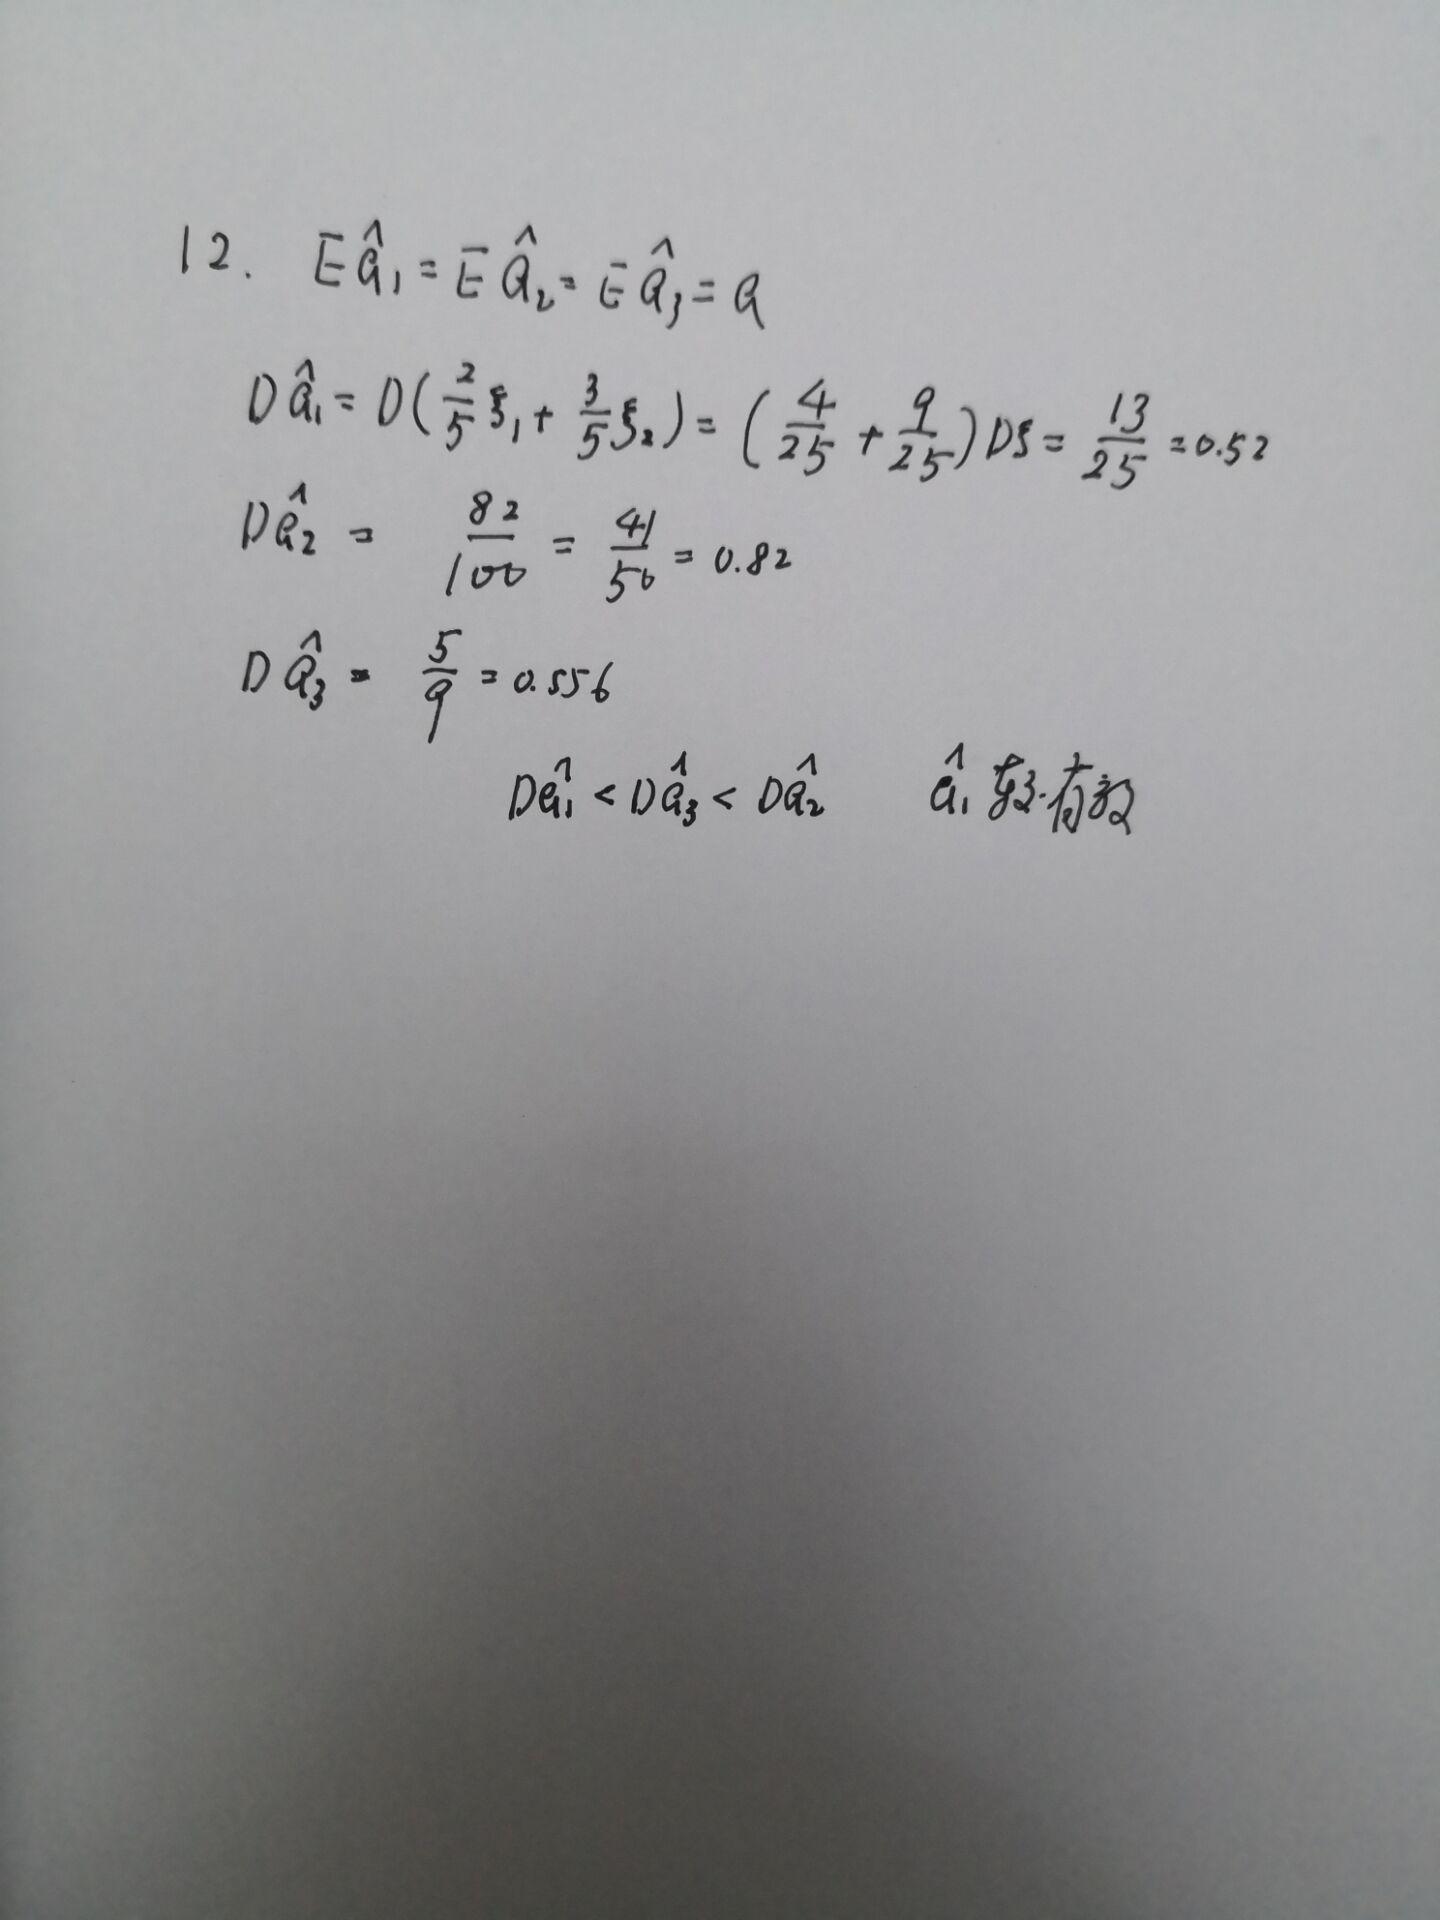 12. Eâ₁ = Eâ₂ = Eâ₃ = a
Dâ₁ = D(2/5 ξ₁ + 3/5 ξ₂) = (4/25 + 9/25)Dξ = 13/25 = 0.52
Dâ₂ = 82/100 = 41/50 = 0.82
Dâ₃ = 5/9 = 0.556
Dâ₁ < Dâ₃ < Dâ₂ â₁ 有效